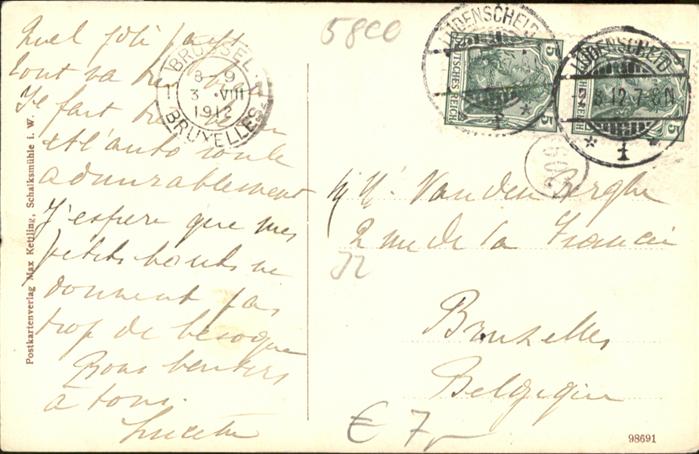 Quel joli pays
tout va bien
Il fait
et l'auto roule
admirablement
J'espère que mes
petits bouts ne
donnent pas
trop de besogne
Bons baisers
à tous.
Lucette
Postkartenverlag Max Kettling, Schalksmühle i. W.
BRUSSEL
1
8-9
3 VIII
1912
BRUXELLES
5800
LÜDENSCHEID
1
DEUTSCHES REICH
5
LÜDENSCHEID
12.7-8N
1
5
Van den Berghe
2 rue de la
32
Bruxelles
Belgique
€ 7,-
98691